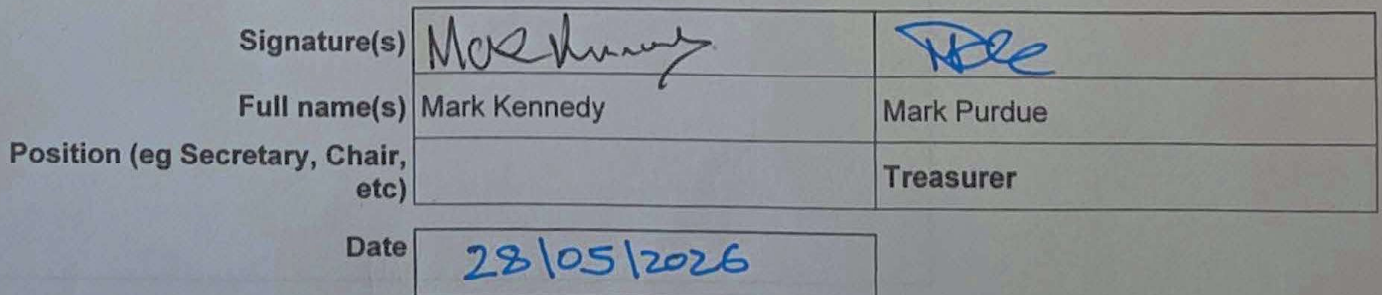 Signature(s)
Full name(s) Mark Kennedy Mark Purdue
Position (eg Secretary, Chair,
etc) Treasurer
Date 28/05/2026